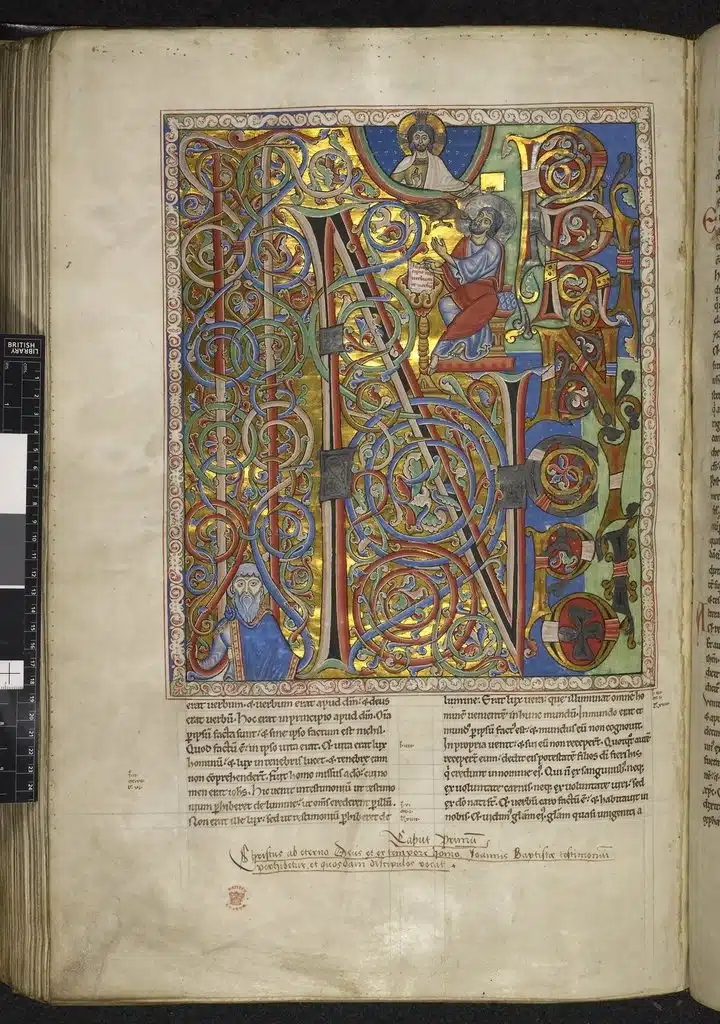 IN PRINCIPIO
erat uerbum & uerbum erat apud dm̄ & deus
erat uerbū. Hoc erat in principio apud dm̄. Om̄ia
p ipsū facta sunt: & sine ipso factum est nichil.
Quod factū ē in ipso uita erat. Et uita erat lux
hominū: & lux in tenebris lucet & tenebre eam
non cōprehendert̄. Fuit homo missus a dō: cui no
men erat iohs. Hic uenit in testimoniū ut testimo
nium phiberet de lumine: ut om̄s crederent p illū.
Non erat ille lux: sed ut testimoniū phiberet de
lumine. Erat lux uera: que illuminat omnē ho
minē uenientē in hunc mundū. In mundo erat et
mund' p ipsū fact' est: & mundus eū non cognouit.
In propria uenit: & sui eū non recepert̄. Quotqt autē
recepert̄ eum: dedit eis potestatē filios dī fieri: his
q̄ credunt in nomine ei'. Qui n̄ ex sanguinib; neq;
ex uoluntate carnis: neq; ex uoluntate uiri: sed
ex dō nati st̄. Et uerbū caro factū ē: & habitauit in
nobis. Et uidim' glām ei': glām quasi unigeniti a
Caput Primū
Christus ab eterno Deus et ex tempore homo, Ioannis Baptistæ testimoniū
perhibetur, et quosdam discipulos vocat.
BRITISH
LIBRARY